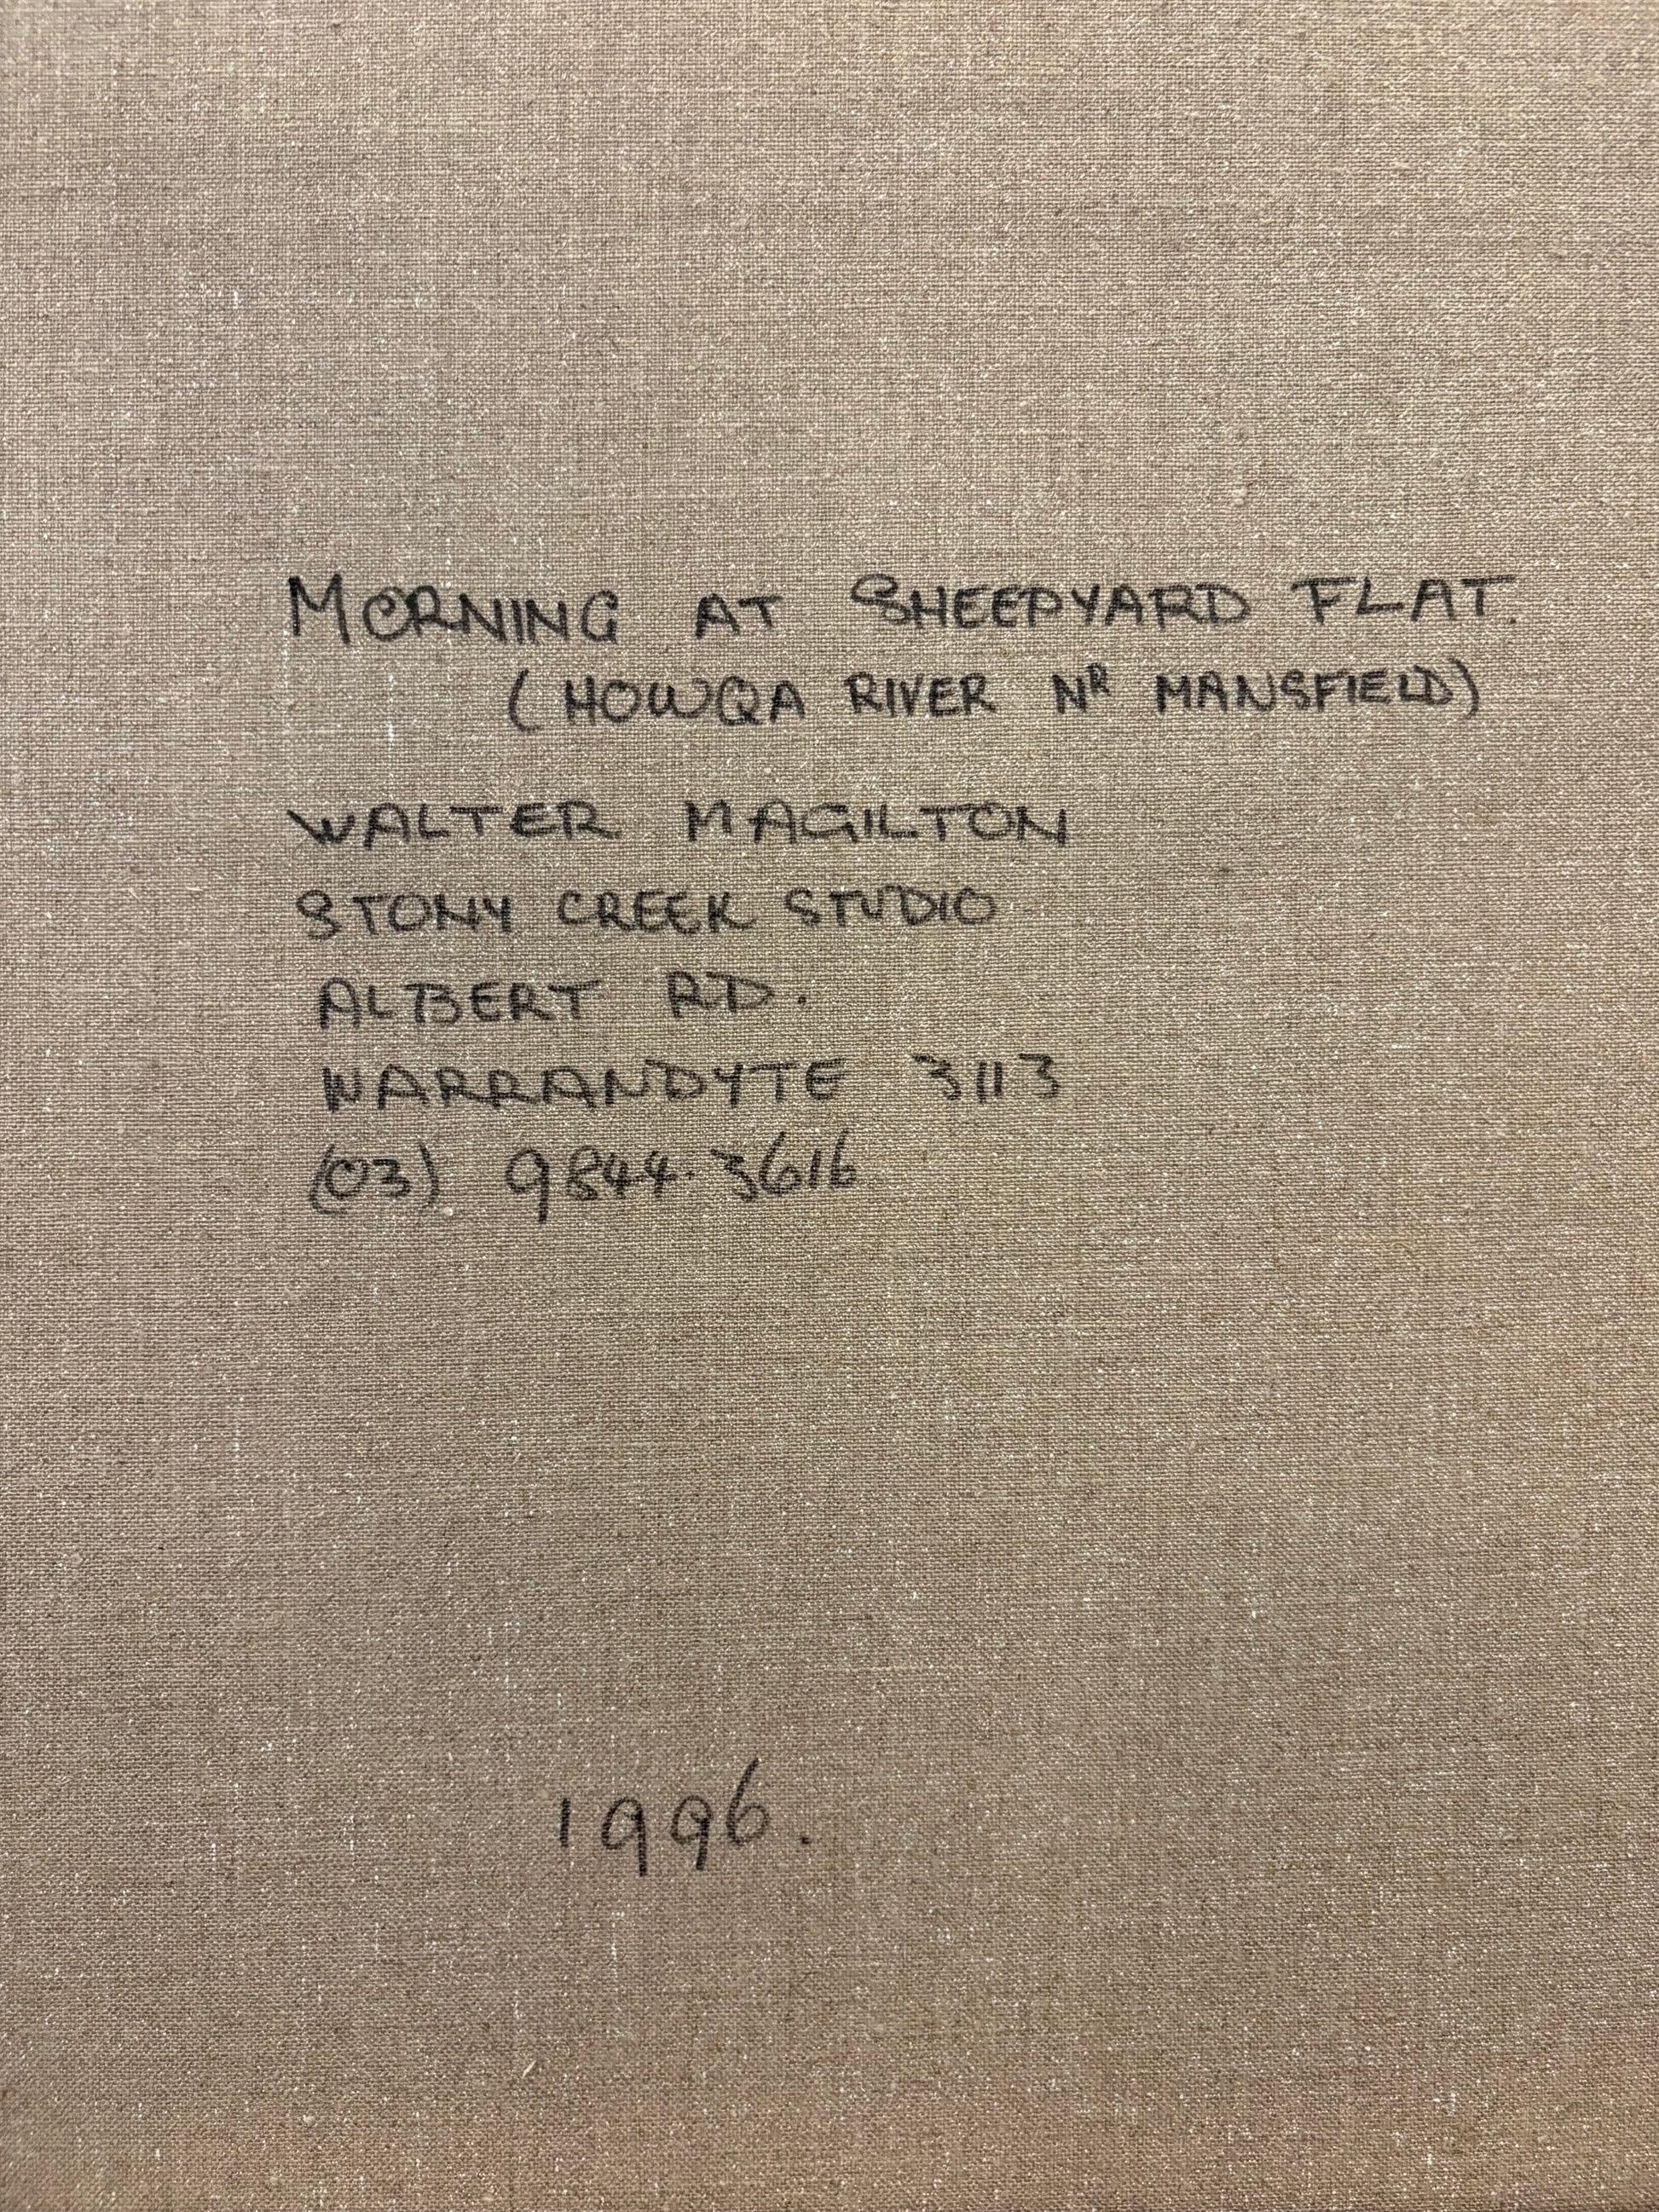 MORNING AT SHEEPYARD FLAT.
(HOWQA RIVER NR MANSFIELD)
WALTER MAGILTON
STONY CREEK STUDIO
ALBERT RD.
WARRANDYTE 3113
(03) 9844.3616
1996.